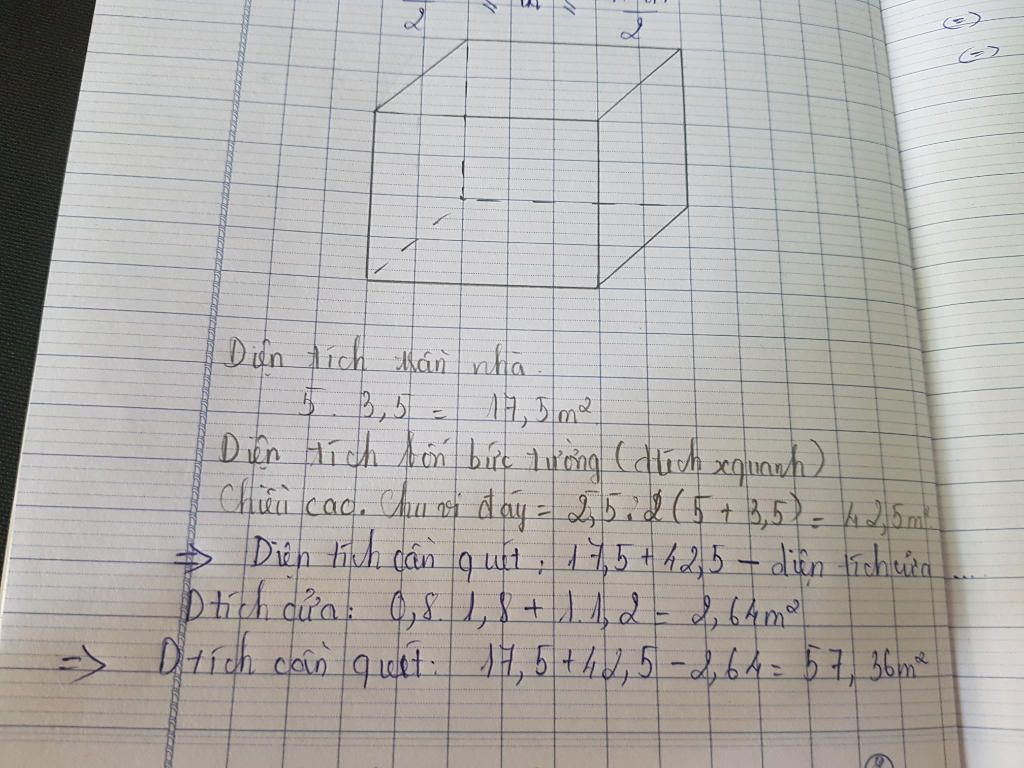 2 2
(=>)
(=>)
Diện tích trần nhà.
5 . 3,5 = 17,5m²
Diện tích bốn bức tường (dtích xquanh)
Chiều cao. Chu vi đáy = 2,5.2(5 + 3,5) = 42,5m²
=> Diện tích cần quét: 17,5 + 42,5 - diện tích cửa ....
Dtích cửa: 0,8.1,8 + 1.1,2 = 2,64m²
=> Dtích cần quét: 17,5 + 42,5 - 2,64 = 57,36m²